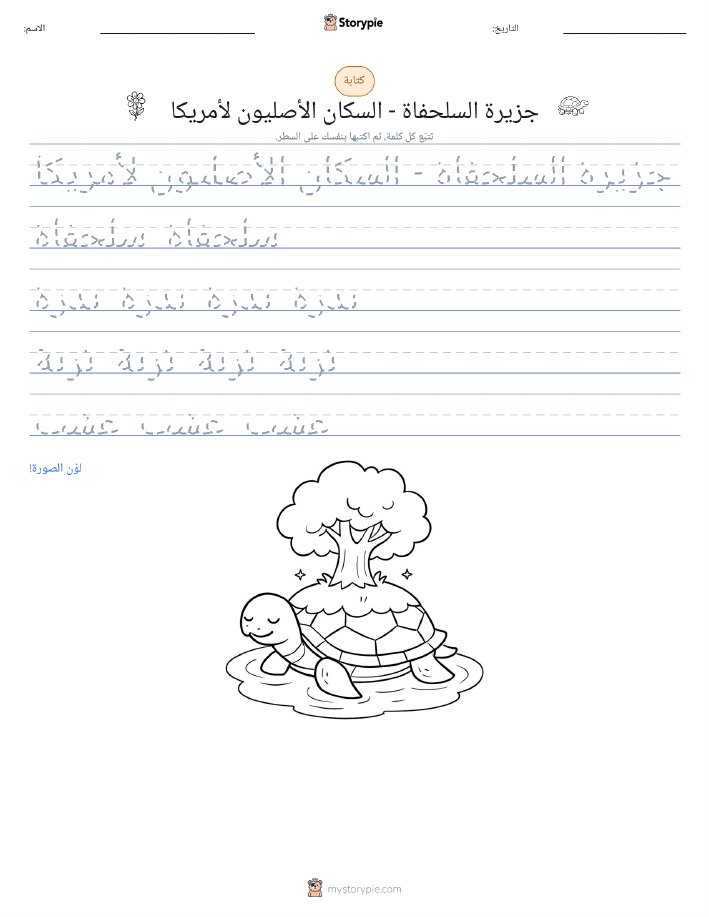 Storypie
الاسم:
التاريخ:
كتابة
جزيرة السلحفاة - السكان الأصليون لأمريكا
تتبّع كل كلمة، ثم اكتبها بنفسك على السطر.
جزيرة السلحفاة - السكان الأصليون لأمريكا
سلحفاة سلحفاة
تربة تربة تربة تربة
عشب عشب عشب
لوّن الصورة!
mystorypie.com